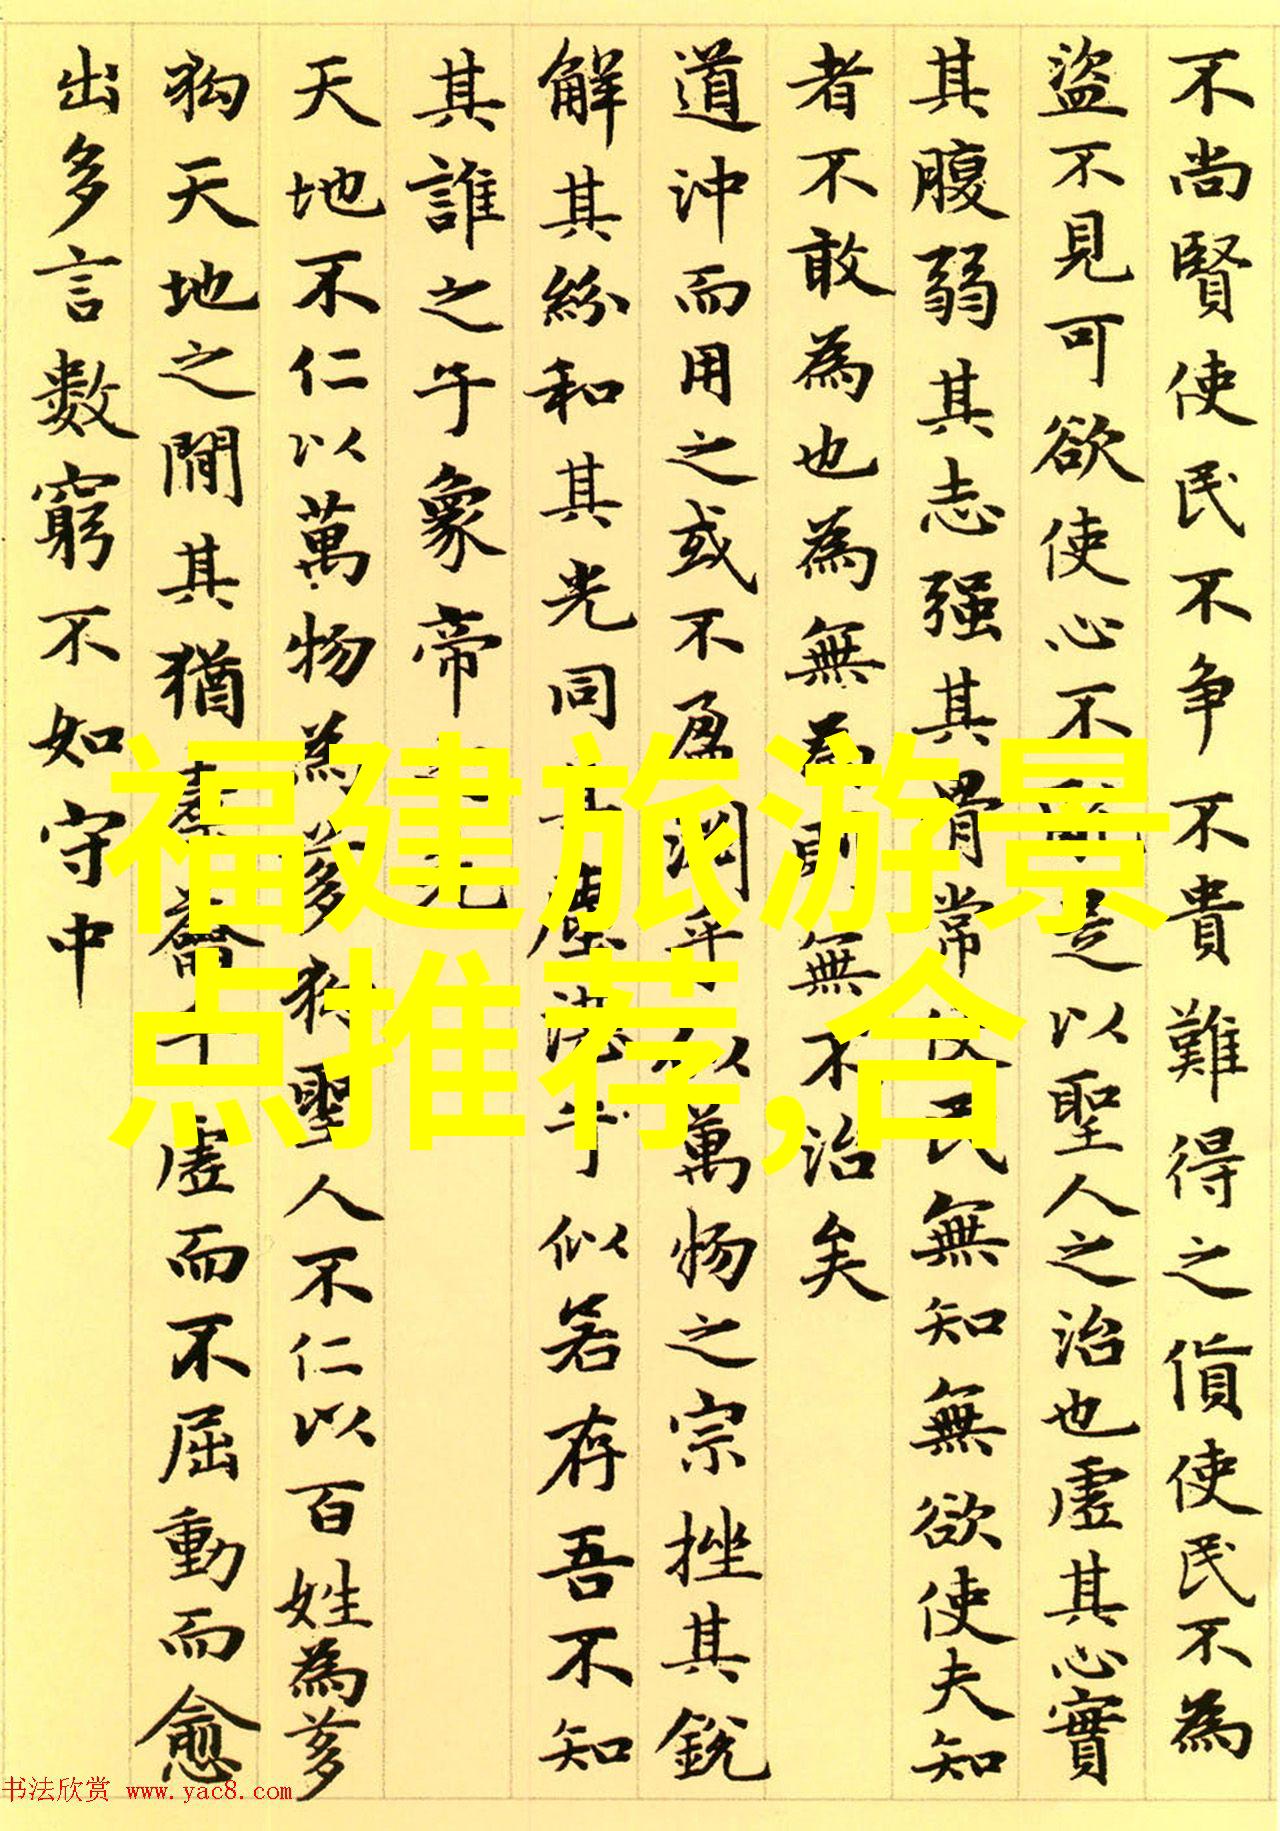 不尚賢使民不争不貴難得之貨使民不為
盜不見可欲使心不亂是以聖人之治也虛其心實
其腹弱其志强其骨常使民無知無欲使夫知
者不敢為也為無為則無不治矣
道沖而用之或不盈淵乎似萬物之宗挫其銳
解其紛和其光同其塵湛乎似若存吾不知
其誰之子象帝之先
天地不仁以萬物為芻狗聖人不仁以百姓為芻
狗天地之間其猶橐籥乎虛而不屈動而愈
出多言數窮不如守中
福建旅游景
点推荐,合
书法欣赏 www.yac8.com